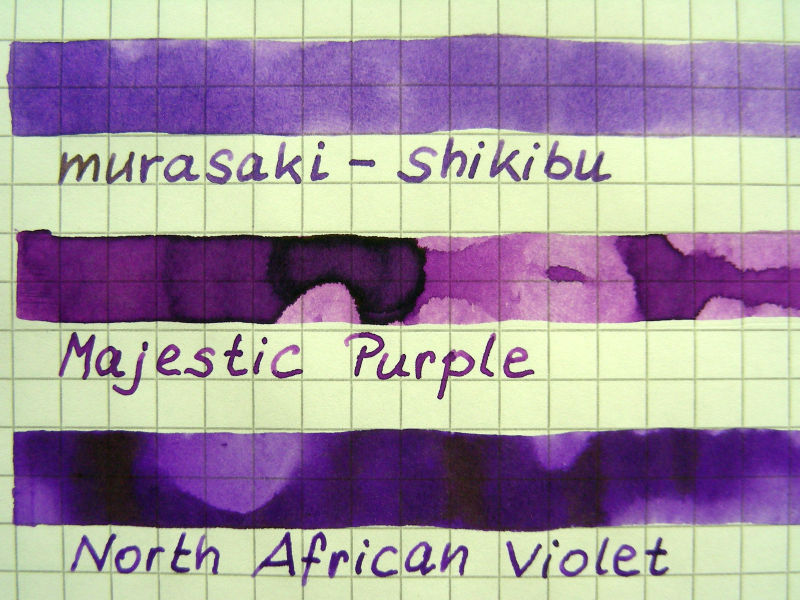 murasaki - shikibu
Majestic Purple
North African Violet